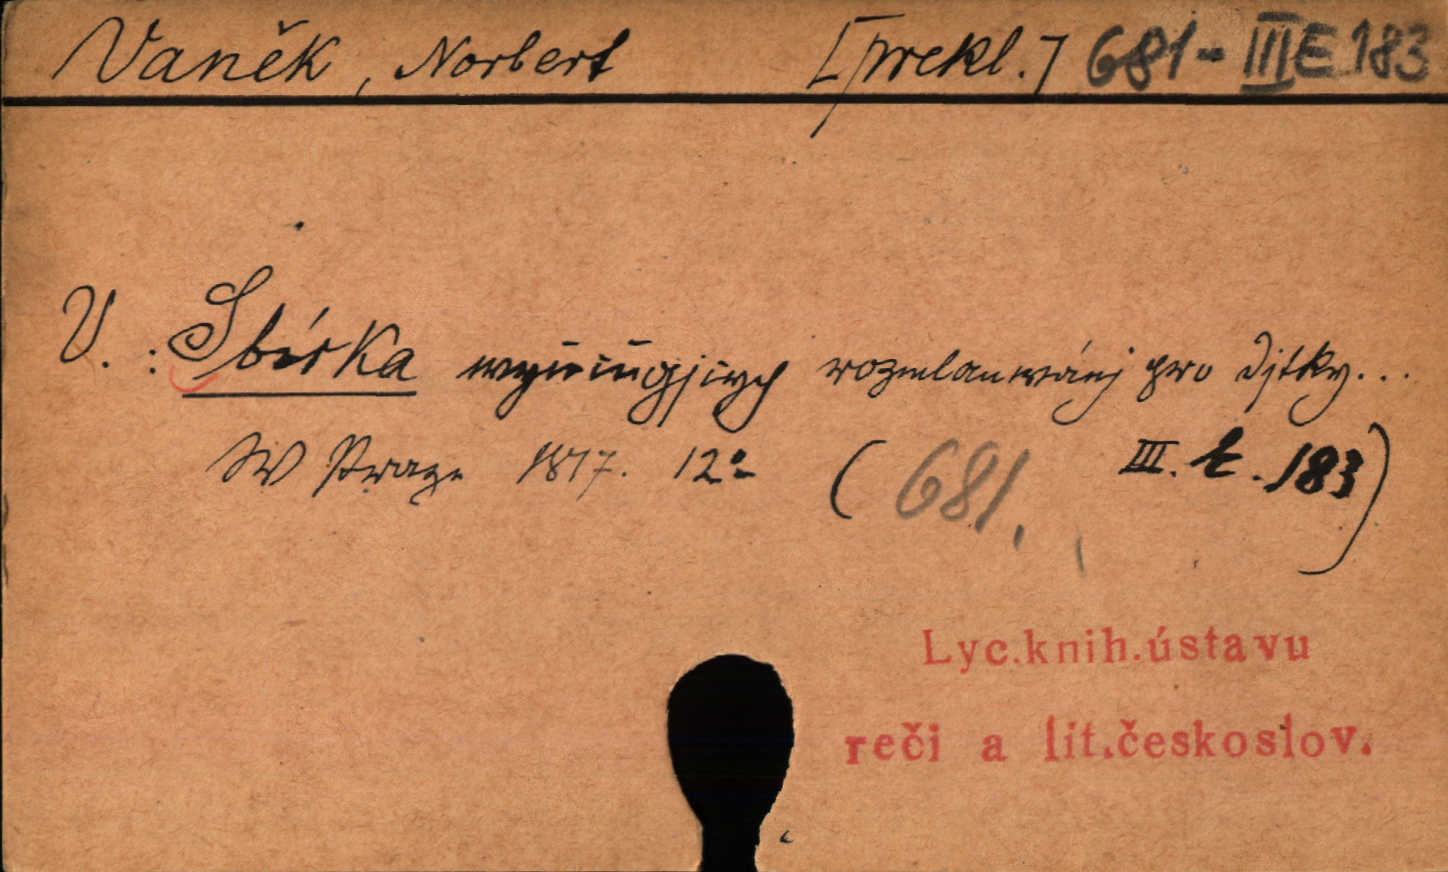 Vaněk, Norbert [prekl.] 681 - III E 183
V. : Sbírka wyučugjcych rozmlauwánj pro djtky...
W Praze 1817. 12° (681. III. E. 183)
Lyc.knih.ústavu
reči a lit.českoslov.